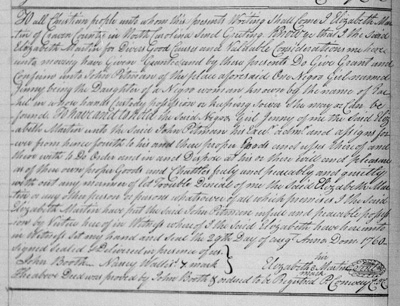 To all Christian people unto whom this presents Writing Shall Come I Elizabeth Mar
tin of Craven County in North Carolina Send Greeting Know ye that I the said
Elizabeth Martin for Divers Good Causes and Valuable Considerations me here
unto moving have Given Granted and by these presents Do Give Grant and
Confirm unto John Peterson of the place aforesaid One Negro Girl named
Jinny being the Daughter of a Negro woman known by the name of
in whose hands Custody possession or keeping Soever She may or Can be
found. To have and to hold the said Negro Girl Jinny of me the said Eliz
abeth Martin unto the Said John Peterson his Exec. Adm. and assigns for
ever from hence forth to his and their proper Goods and uses thereof and
therewith to Do Order and Dispose at his or their will and pleasure
as of their own proper Goods and Chattles freely and peaceably and quietly
with out any manner of Let Trouble Denial of me the Said Elizabeth Mar
tin or any other person or persons whatsoever of all which premises I the Said
Elizabeth Martin have put the Said John Peterson in full and peaceable posses
sion by Virtue here of in Witness where of I the Said Elizabeth Martin have here
unto Set my hand and Seal the 29th Day of Augt Anno Dom 1760
Signed Sealed & Delivered in presence of us
John Booth Nancy mark
her
Elizabeth Martin
mark
The above Deed was proved by John Booth & ordered to be Registered